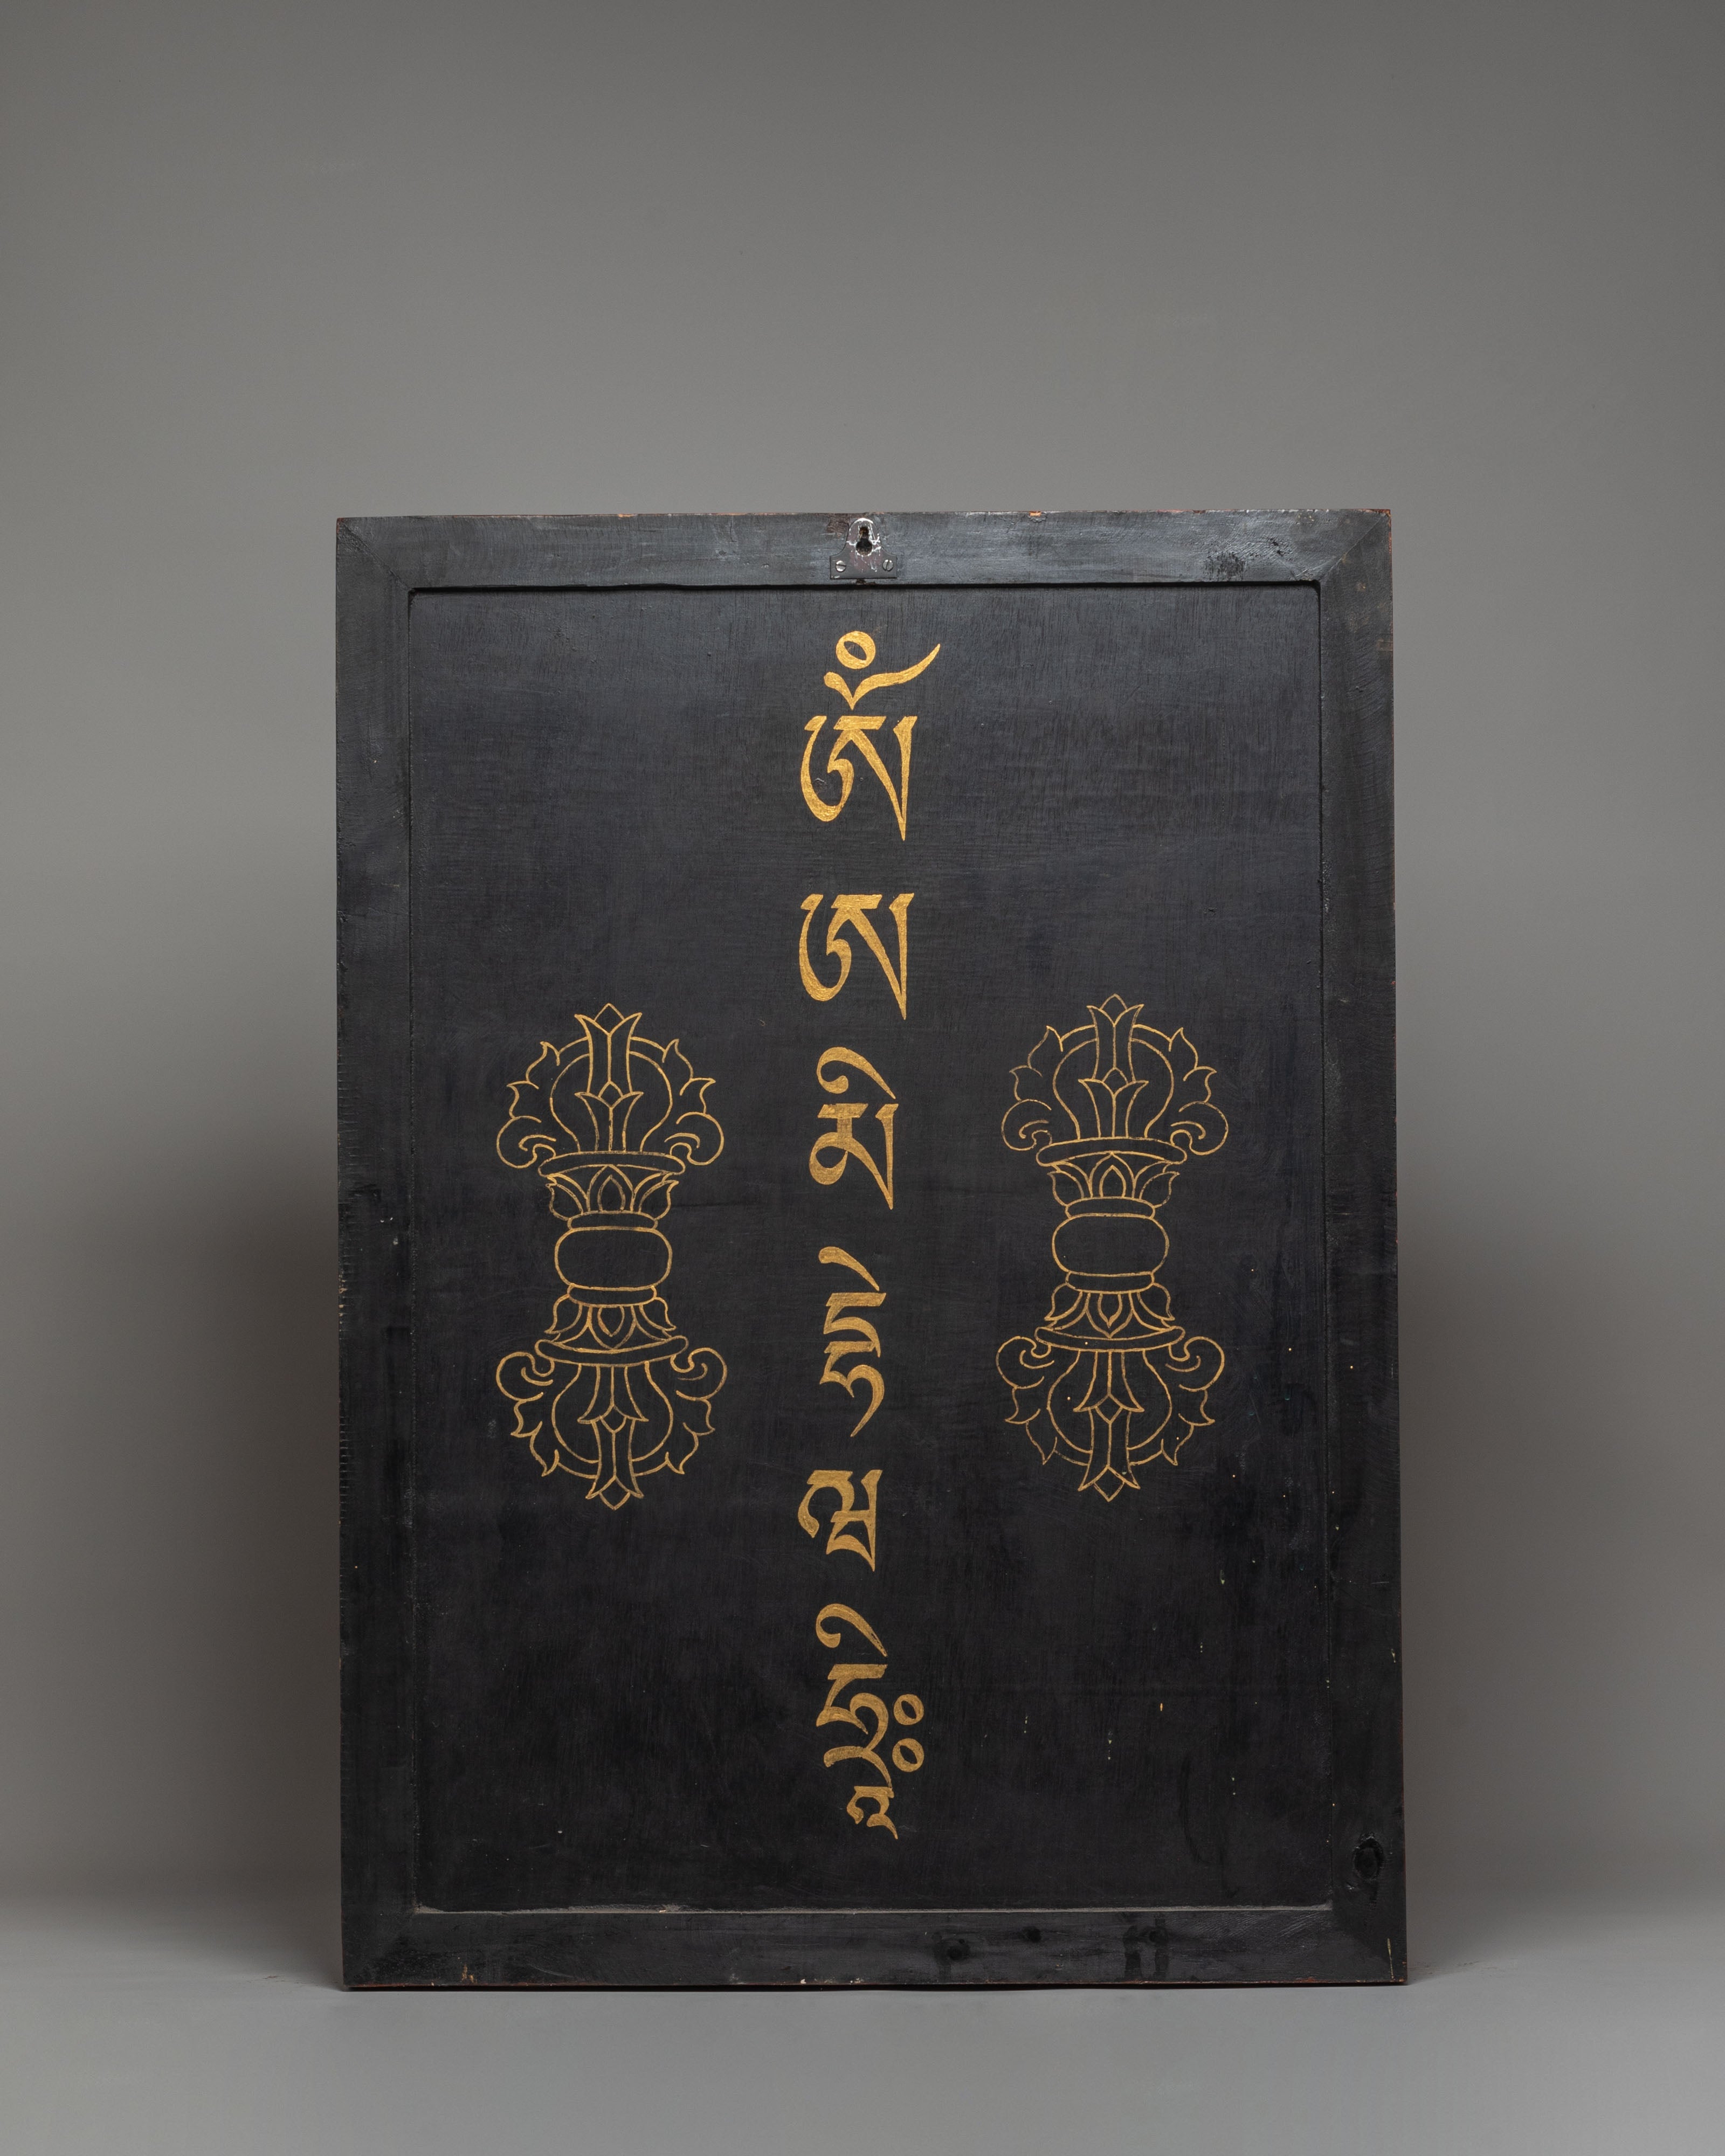 ཨོཾ
ཨ
མི
དེ
ཝ
ཧྲཱིཿ